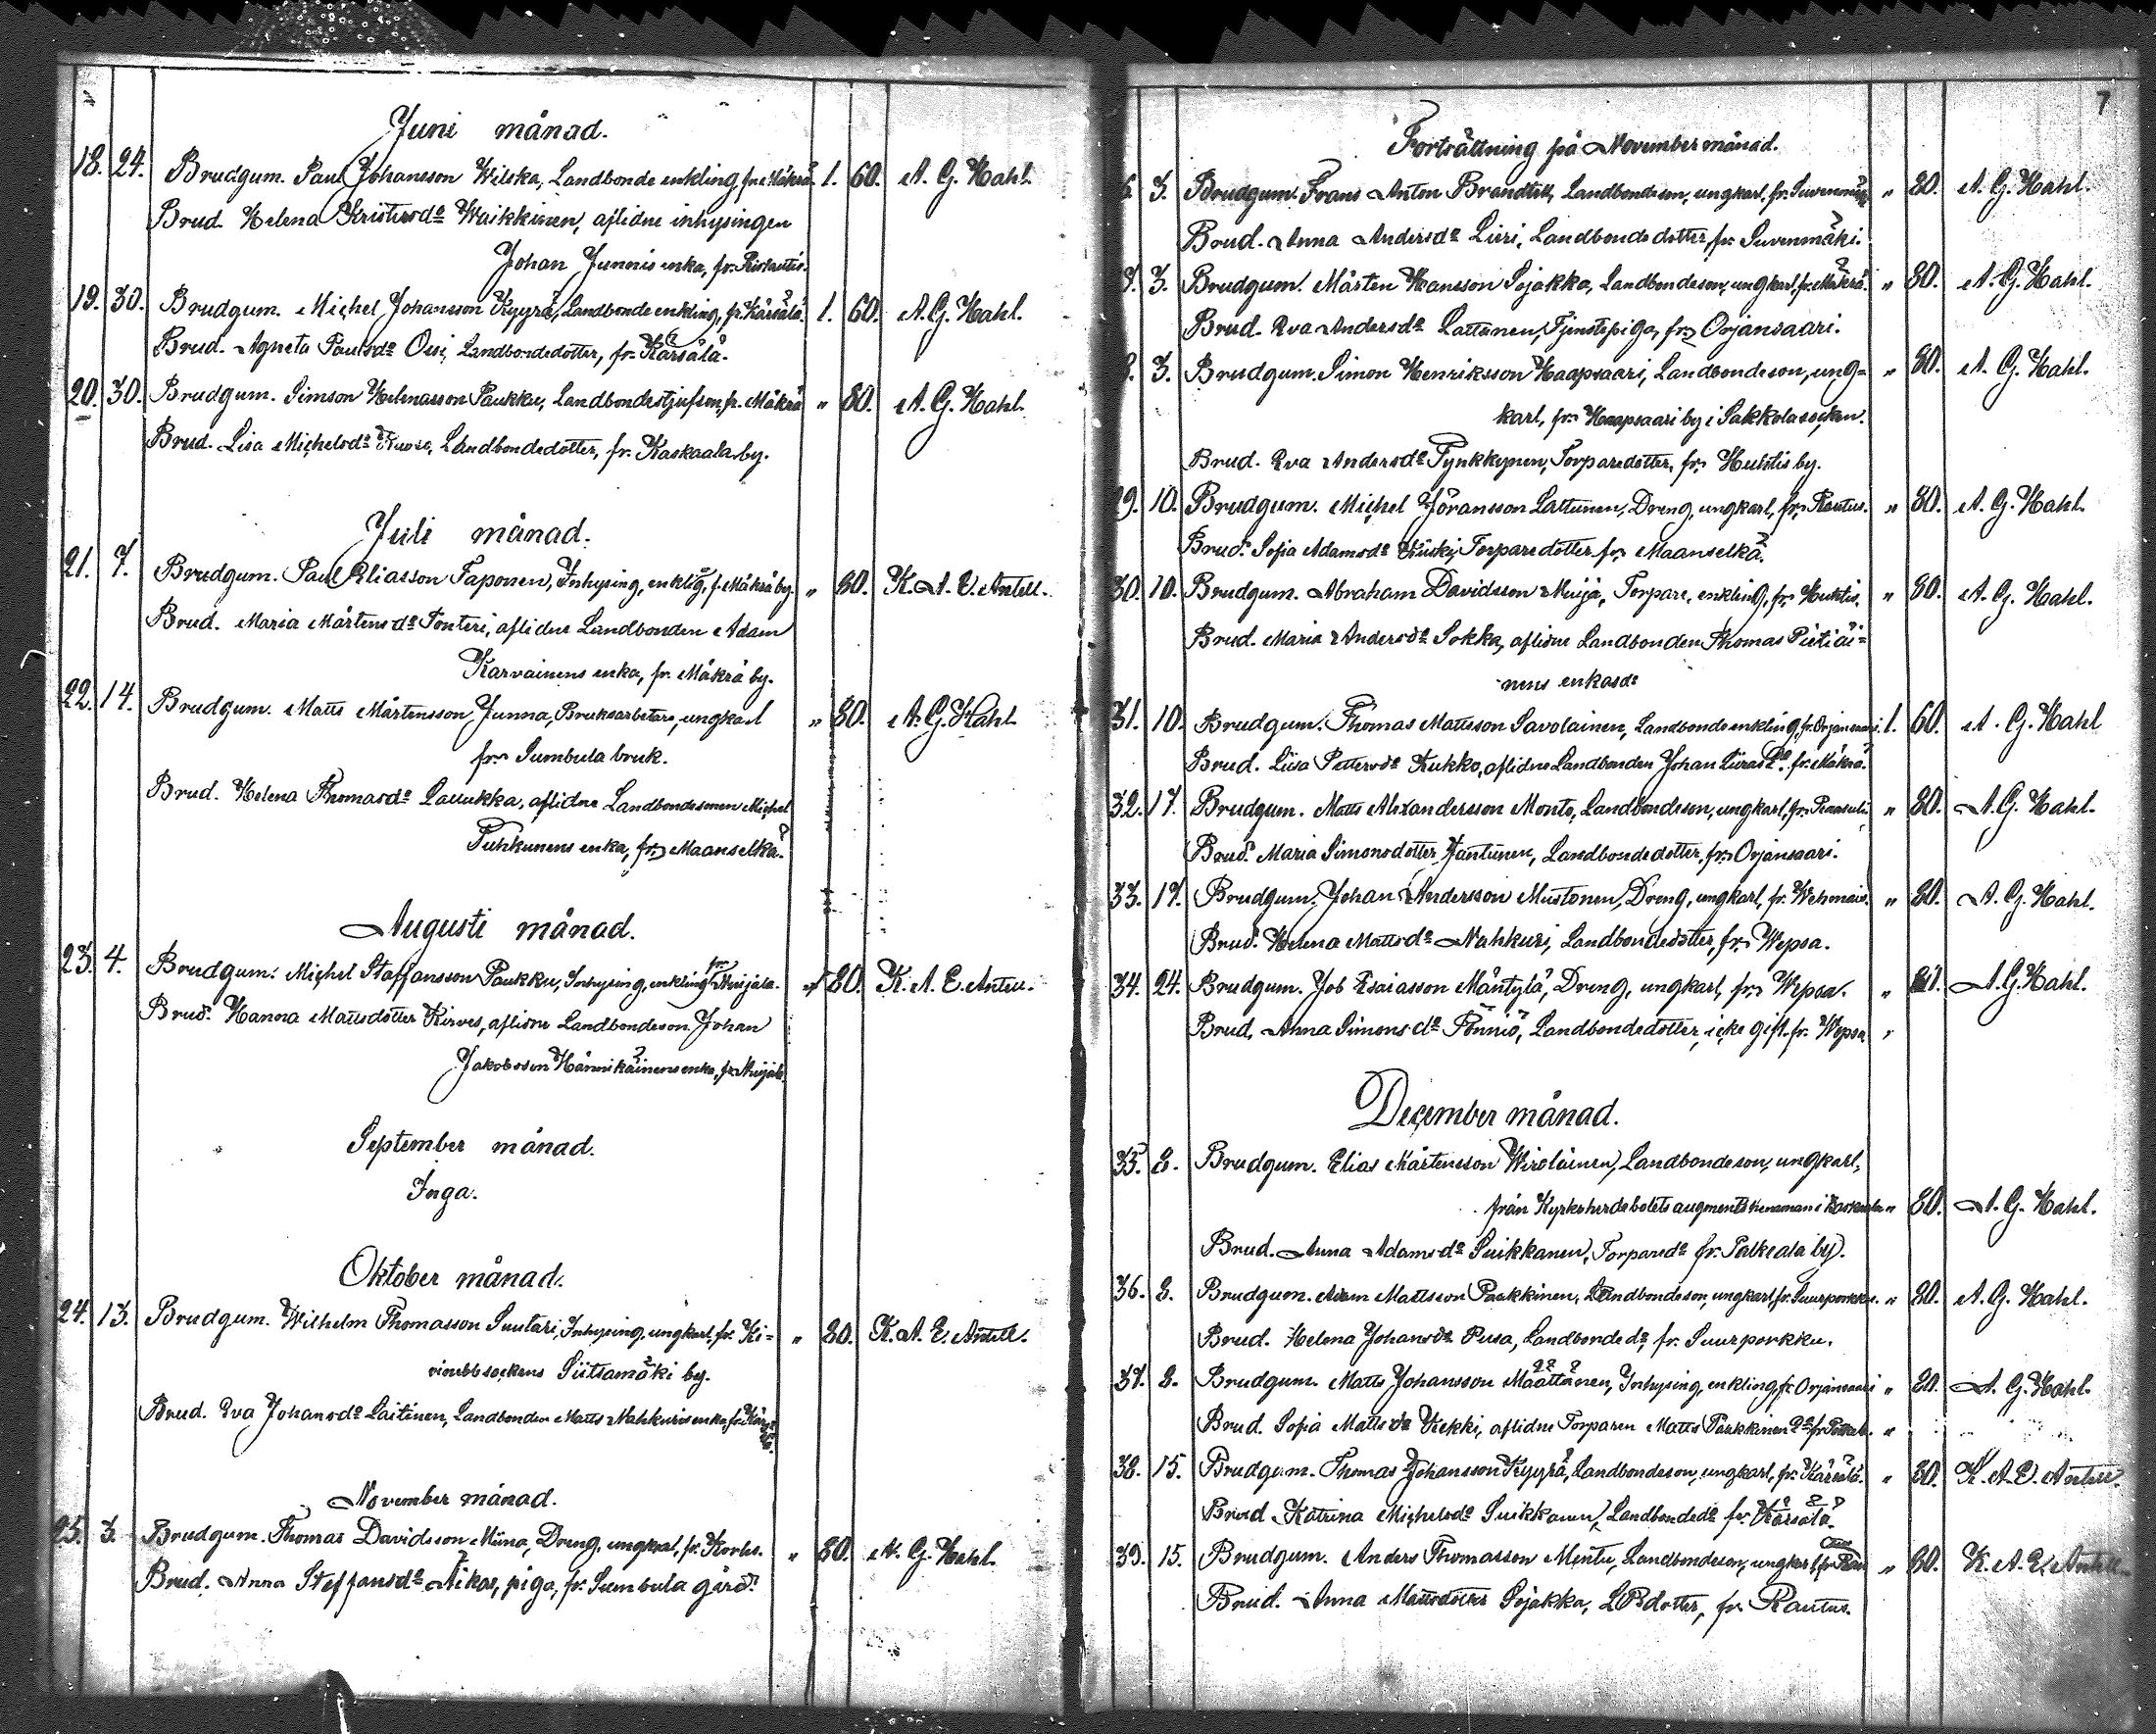 Juni månad.
18. 24. Brudgum. Paul Johansson Wilska, Landbonde enkling, fr. Mäkrä 1. 60. A. G. Hahl.
Brud. Helena Kristersdr Waikkinen, aflidne inhysingen
Johan Junnis enka, fr.
19. 30. Brudgum. Michel Johansson Kyyrä, Landbonde enkling, fr. Kärsälä. 1. 60. A. G. Hahl.
Brud. Agneta Paulsdr Ossi, Landbondedotter, fr. Kärsälä.
20. 30. Brudgum. Simson Helenasson Paukku, Landbondestjufson, fr. Mäkrä " 80. A. G. Hahl.
Brud. Lisa Michelsdr Landbondedotter, fr. Kaskaala by.
Juli månad.
21. 7. Brudgum. Paul Eliasson Taponen, Inhysing, enkling, f. Mäkrä by. " 80. K. A. E. Antell.
Brud. Maria Mårtensdr Tonteri, aflidne Landbonden Adam
Karvainens enka, fr. Mäkrä by.
22. 14. Brudgum. Matts Mårtensson Junna, Bruksarbetare, ungkarl " 80. A. G. Hahl
fr. Sumbula bruk.
Brud. Helena Thomasdr Laulukka, aflidne Landbondesonen Michel
Puhkunens enka, fr. Maanselkä.
Augusti månad.
23. 4. Brudgum. Michel Staffansson Paukku, Inhysing, enkling fr. Huijala. " 80. K. A. E. Antell.
Brud. Hanna Mattsdotter Kirves, aflidne Landbondeson Johan
Jakobsson Hännikäinens enka, fr. Huijala.
September månad.
Inga.
Oktober månad.
24. 13. Brudgum. Wilhelm Thomasson Suutari, Inhysing, ungkarl, fr. Ki= " 80. K. A. E. Antell.
vinebb sockens Siitsamäki by.
Brud. Eva Johansdr Laitinen, Landbonden Matts Nahkuris enka, fr.
November månad.
25. 3. Brudgum. Thomas Davidsson Miina, Dreng, ungkarl, fr. Korles. " 80. A. G. Hahl.
Brud. Anna Steffansdr Äikas, piga, fr. Sumbula gård.
7
Fortsättning på November månad.
6. 3. Brudgum. Frans Anton Brandtell, Landbondeson, ungkarl, fr. Suvenmäki " 80. A. G. Hahl.
Brud. Anna Andersdr Liiri, Landbonde dotter, fr. Suvenmäki.
7. 3. Brudgum. Mårten Hansson Sojakka, Landbondeson, ungkarl, fr. Mäkrä. " 80. A. G. Hahl.
Brud. Eva Andersdr Lattunen, Tjenstepiga, fr. Orjansaari.
8. 3. Brudgum. Simon Henriksson Haapsaari, Landbondeson, ung= " 80. A. G. Hahl.
karl, fr. Haapsaari by i Sakkola socken.
Brud. Eva Andersdr Pynkkynen, Torparedotter, fr. Huhtis by.
29. 10. Brudgum. Michel Jöransson Lattunen, Dreng, ungkarl, fr. Rautus. " 80. A. G. Hahl.
Brud. Sofia Adamsdr Kuiski, Torparedotter fr. Maanselkä.
30. 10. Brudgum. Abraham Davidsson Muija, Torpare, enkling, fr. Huhtis. " 80. A. G. Hahl.
Brud. Maria Andersdr Sokka, aflidne Landbonden Thomas Pietiäi=
nens enka
31. 10. Brudgum. Thomas Mattsson Savolainen, Landbonde enkling, fr. Orjansaari. 1. 60. A. G. Hahl
Brud. Liisa Pettersdr Kukko, aflidne Landbonden Johan fr. Mäkrä.
32. 17. Brudgum. Matts Alexandersson Monto, Landbondeson, ungkarl, fr. Raasuli. " 80. A. G. Hahl.
Brud. Maria Simonsdotter Jantunen, Landbondedotter, fr. Orjansaari.
33. 17. Brudgum. Johan Andersson Mustonen, Dreng, ungkarl, fr. Wehmais. " 80. A. G. Hahl.
Brud. Helena Mattsdr Nahkuri, Landbondedotter, fr. Wepsa.
34. 24. Brudgum. Job Esaiasson Mäntylä, Dreng, ungkarl, fr. Wepsa. " 80. A. G. Hahl.
Brud. Anna Simonsdr Pönniö, Landbondedotter, icke gift, fr. Wepsa "
December månad.
35. 8. Brudgum. Elias Mårtensson Wirolainen, Landbondeson, ungkarl,
från Kyrkoherdebolets augments hemman i Kaskaala " 80. A. G. Hahl.
Brud. Anna Adamsdr Suikkanen, Torparedr fr. Palkeala by.
36. 8. Brudgum. Adam Mattsson Paukkinen, Landbondeson, ungkarl, fr. Suurporkku. " 80. A. G. Hahl.
Brud. Helena Johansdr Pusa, Landbondedr, fr. Suurporkku.
37. 8. Brudgum. Matts Johansson Määttänen, Inhysing, enkling, fr. Orjansaari " 80. A. G. Hahl.
Brud. Sofia Mattsdr Kekki, aflidne Torparen Matts Paukkinen "
38. 15. Brudgum. Thomas Johansson Kyyrä, Landbondeson, ungkarl, fr. Kärsälä. " 80. K. A. E. Antell.
Brud. Katrina Michelsdr Suikkanen, Landbondedr fr. Kärsälä.
39. 15. Brudgum. Anders Thomasson Mentu, Landbondeson, ungkarl, fr. " 80. K. A. E. Antell.
Brud. Anna Mattsdotter Sojakka, LBdotter, fr. Rautus.